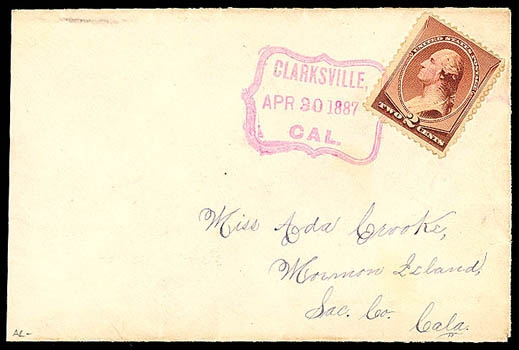 CLARKSVILLE,
APR 30 1887
CAL.
UNITED STATES
TWO 2 CENTS
Miss Ada Crooke,
Mormon Island,
Sac. Co.
Cala.